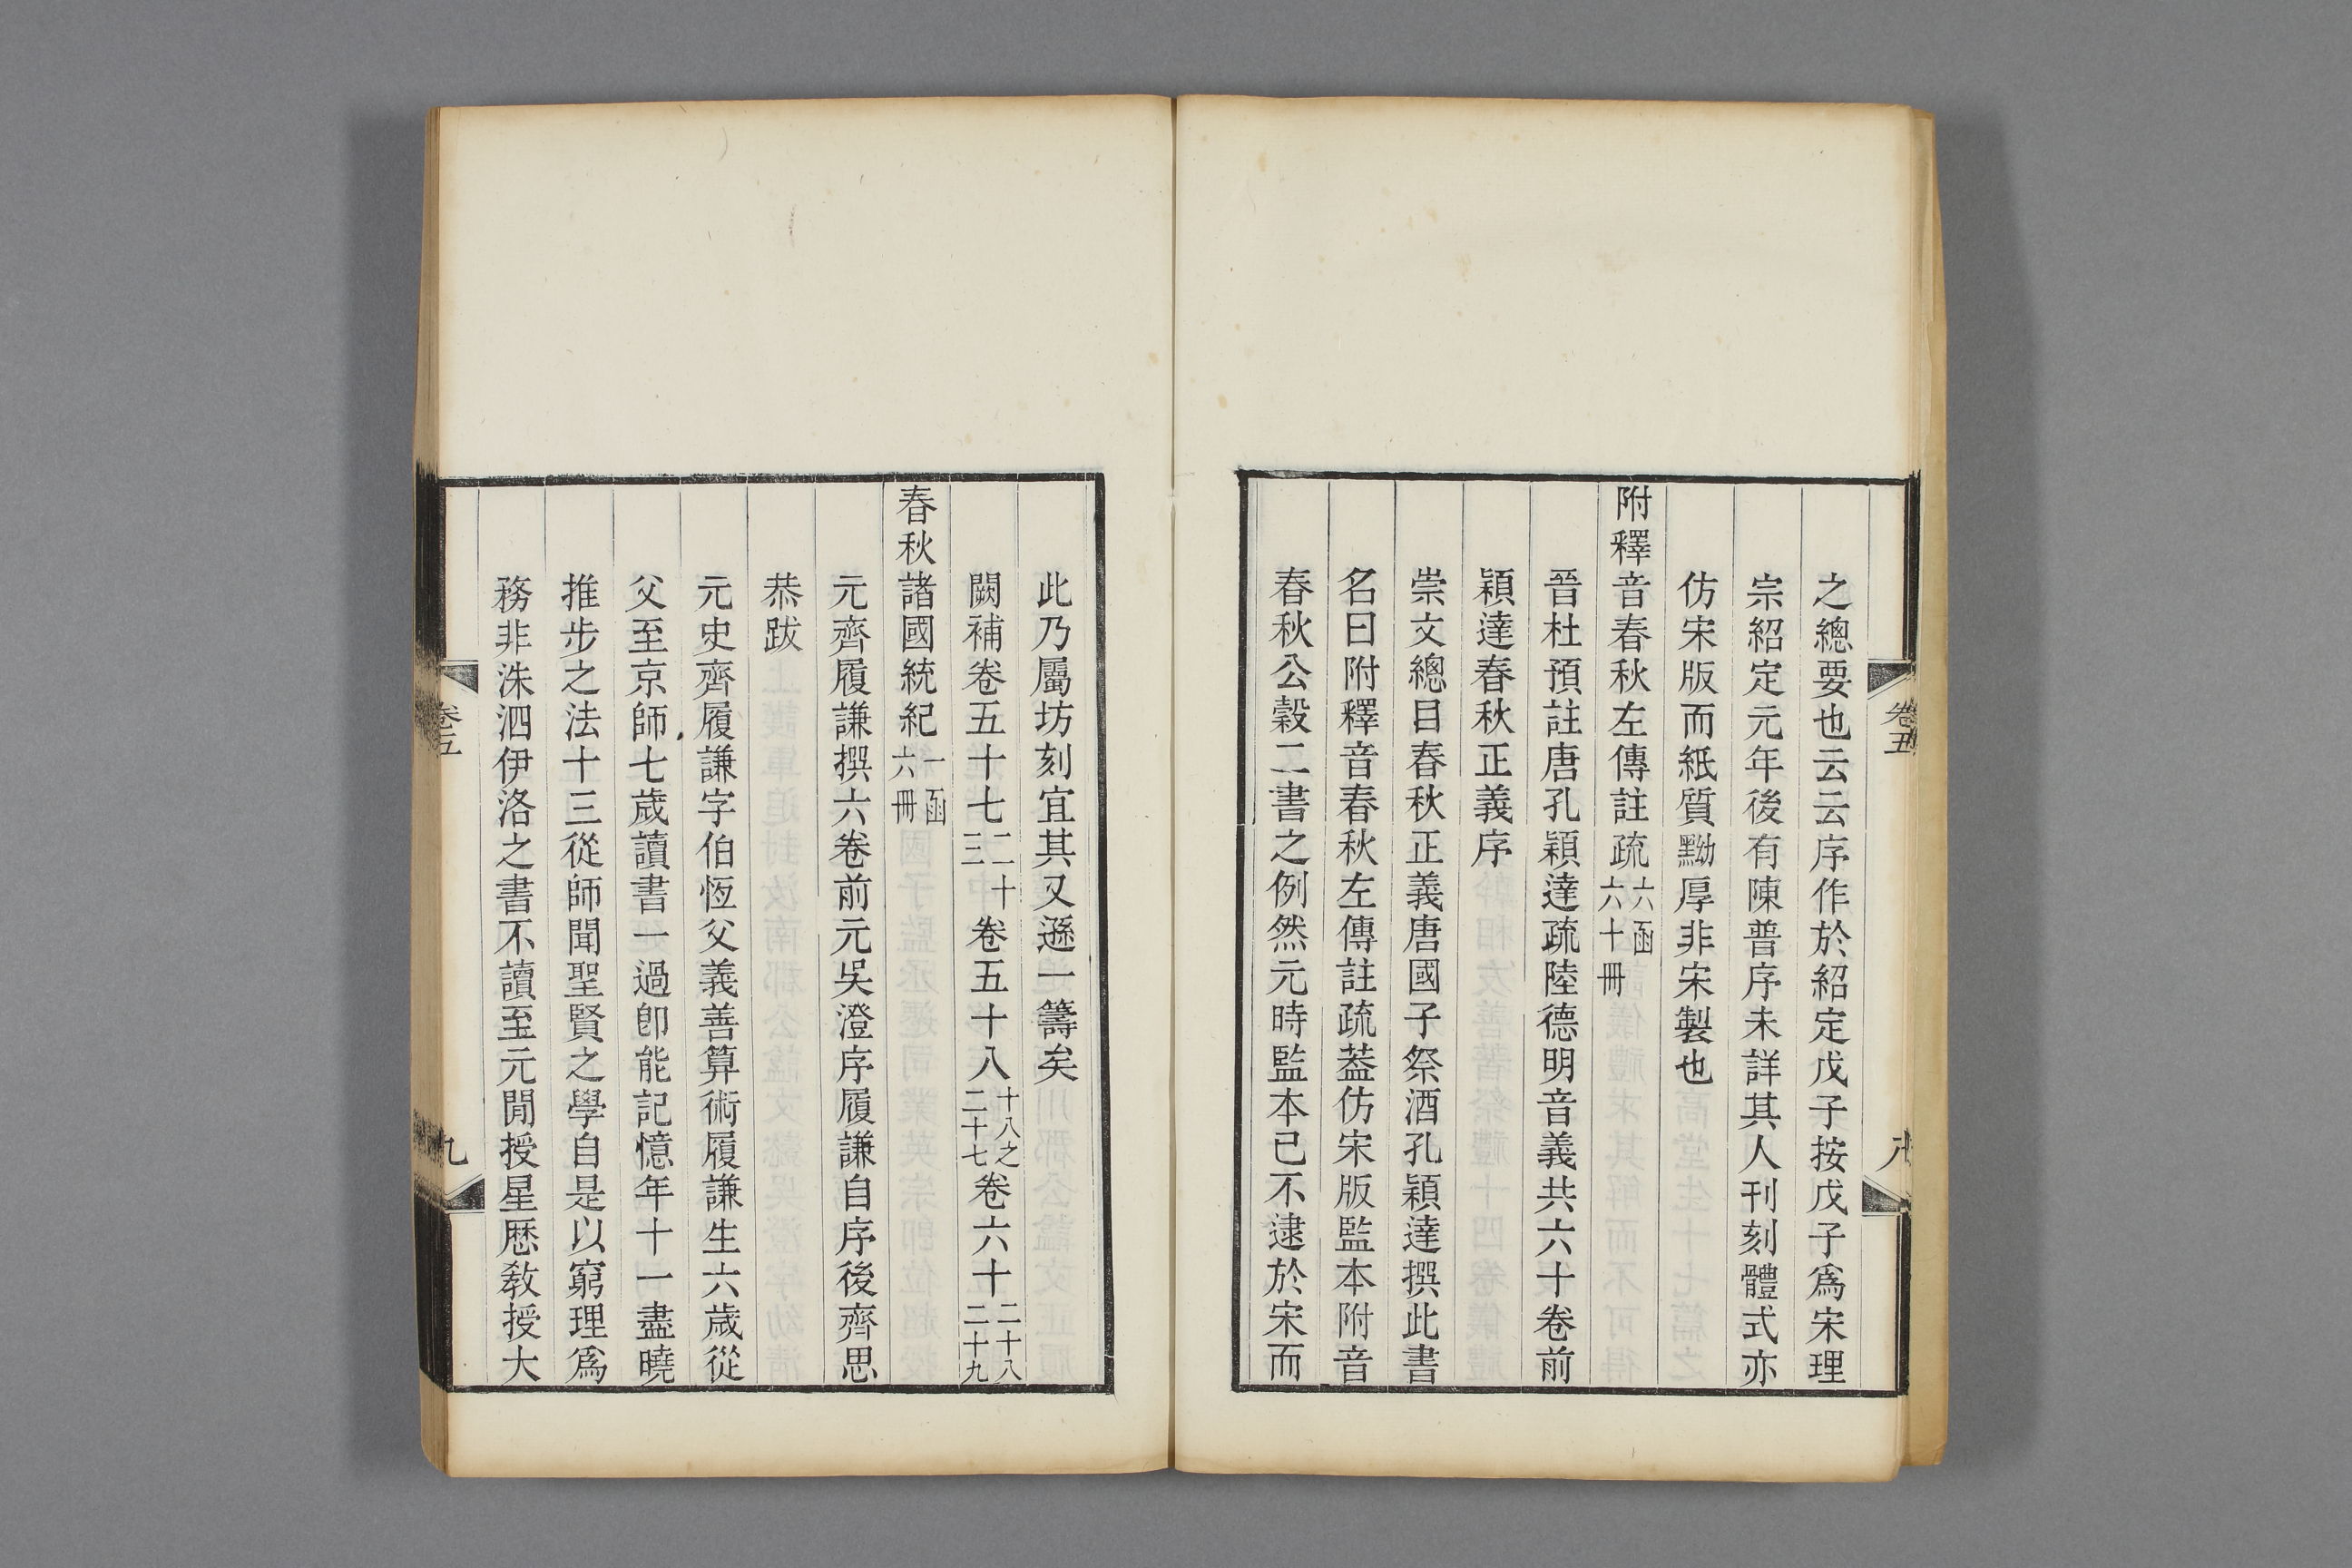 之總要也云云序作於紹定戊子按戊子爲宋理
宗紹定元年後有陳普序未詳其人刊刻體式亦
仿宋版而紙質黝厚非宋製也
附釋音春秋左傳註疏六函六十冊
晉杜預註唐孔穎達疏陸德明音義共六十卷前
穎達春秋正義序
崇文總目春秋正義唐國子祭酒孔穎達撰此書
名曰附釋音春秋左傳註疏葢仿宋版監本附音
春秋公穀二書之例然元時監本已不逮於宋而
卷五
八
此乃屬坊刻宜其又遜一籌矣
闕補卷五十七二十二三卷五十八十八之二十七卷六十二十八二十九
春秋諸國統紀一函六冊
元齊履謙撰六卷前元吳澄序履謙自序後齊思
恭跋
元史齊履謙字伯恆父義善算術履謙生六歲從
父至京師七歲讀書一過卽能記憶年十一盡曉
推步之法十三從師聞聖賢之學自是以窮理爲
務非洙泗伊洛之書不讀至元閒授星曆敎授大
卷五
九